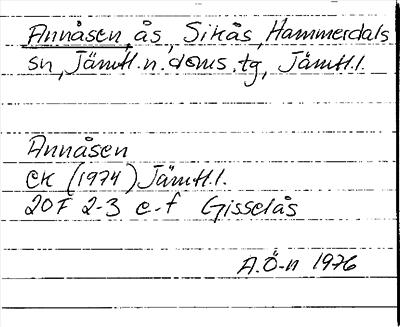 Annåsen, ås, Sikås, Hammerdals
sn, Jämtl.n.doms.tg, Jämtl.l.
Annåsen
EK (1974) Jämtl.l.
20F 2-3 e-f Gisselås
A.Ö-n 1976